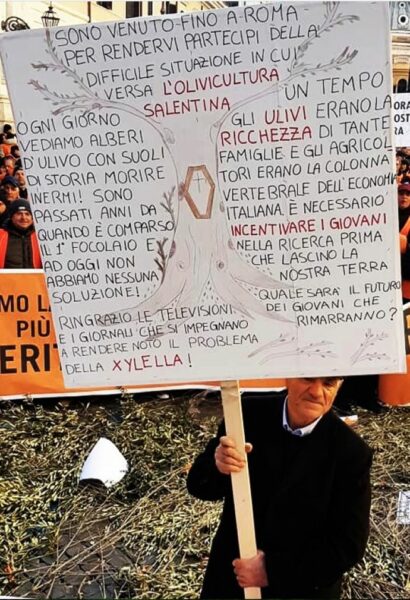 SONO VENUTO FINO A ROMA
PER RENDERVI PARTECIPI DELLA
DIFFICILE SITUAZIONE IN CUI
VERSA L'OLIVICULTURA
SALENTINA
OGNI GIORNO
VEDIAMO ALBERI
D'ULIVO CON SUOLI
DI STORIA MORIRE
INERMI! SONO
PASSATI ANNI DA
QUANDO È COMPARSO
IL 1° FOCOLAIO E
AD OGGI NON
ABBIAMO NESSUNA
SOLUZIONE!
RINGRAZIO LE TELEVISIONI
E I GIORNALI CHE SI IMPEGNANO
A RENDERE NOTO IL PROBLEMA
DELLA XYLELLA!
UN TEMPO
GLI ULIVI ERANO LA
RICCHEZZA DI TANTE
FAMIGLIE E GLI AGRICOL
TORI ERANO LA COLONNA
VERTEBRALE DELL'ECONOMIA
ITALIANA. È NECESSARIO
INCENTIVARE I GIOVANI
NELLA RICERCA PRIMA
CHE LASCINO LA
NOSTRA TERRA
QUALE SARÀ IL FUTURO
DEI GIOVANI CHE
RIMARRANNO?
MO LA
PIÙ
ERIT
ORA
OST
RA